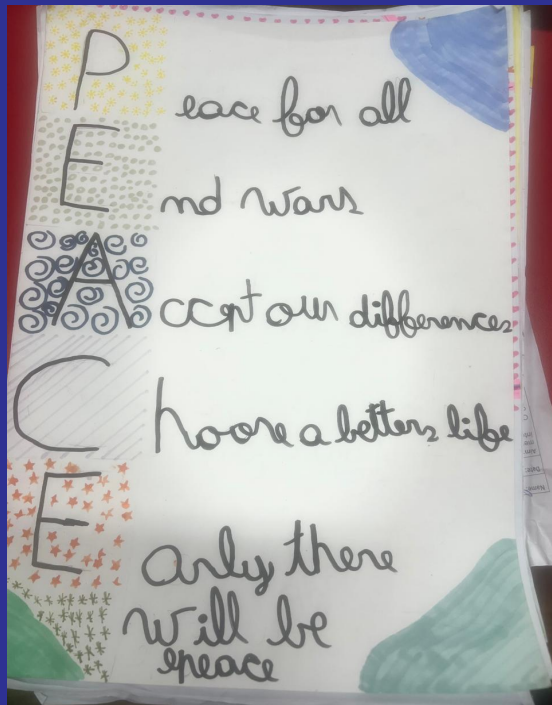 Peace for all
End wars
Accept our differences
Choose a better life
Early there
will be
peace